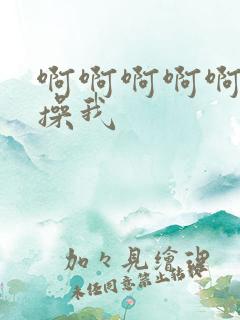 啊啊啊啊啊
操我
加々見繪理
未经同意禁止转载